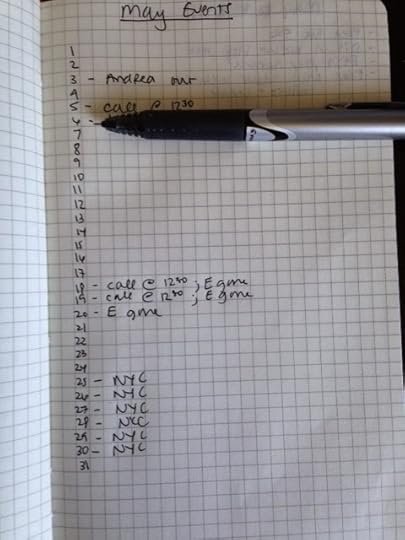 May Events
1
2
3 - Andrea out
4
5 - call @ 1230
6 -
7
8
9
10
11
12
13
14
15
16
17
18 - call @ 1230 ; E gone
19 - call @ 1230 ; E gone
20 - E gone
21
22
23
24
25 - NYC
26 - NYC
27 - NYC
28 - NYC
29 - NYC
30 - NYC
31